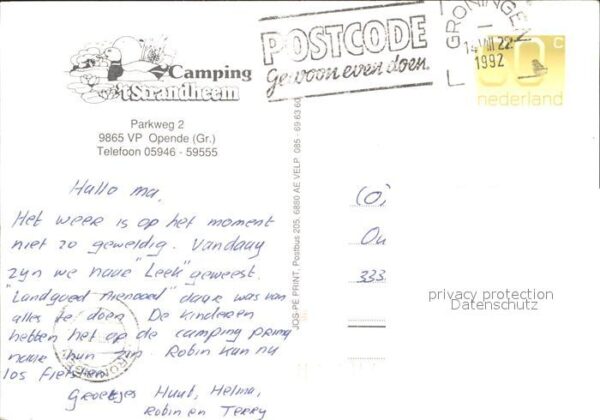 POSTCODE
Gewoon even doen.
GRONINGEN
14 VIII 22
1992
c
nederland
Camping
'tStrandheem
Parkweg 2
9865 VP Opende (Gr.)
Telefoon 05946 - 59555
JOS-PE PRINT, Postbus 205, 6880 AE VELP 085 - 69 63 60
Hallo ma,
Het weer is op het moment
niet zo geweldig. Vandaag
zyn we naar "Leek" geweest.
"Landgoed Nienoord" daar was van
alles te doen. De kinderen
hebben het op de camping prima
naar hun zin. Robin kan nu
los fietsen.
Groetjes Huub, Helma,
Robin en Terry
333
privacy protection
Datenschutz